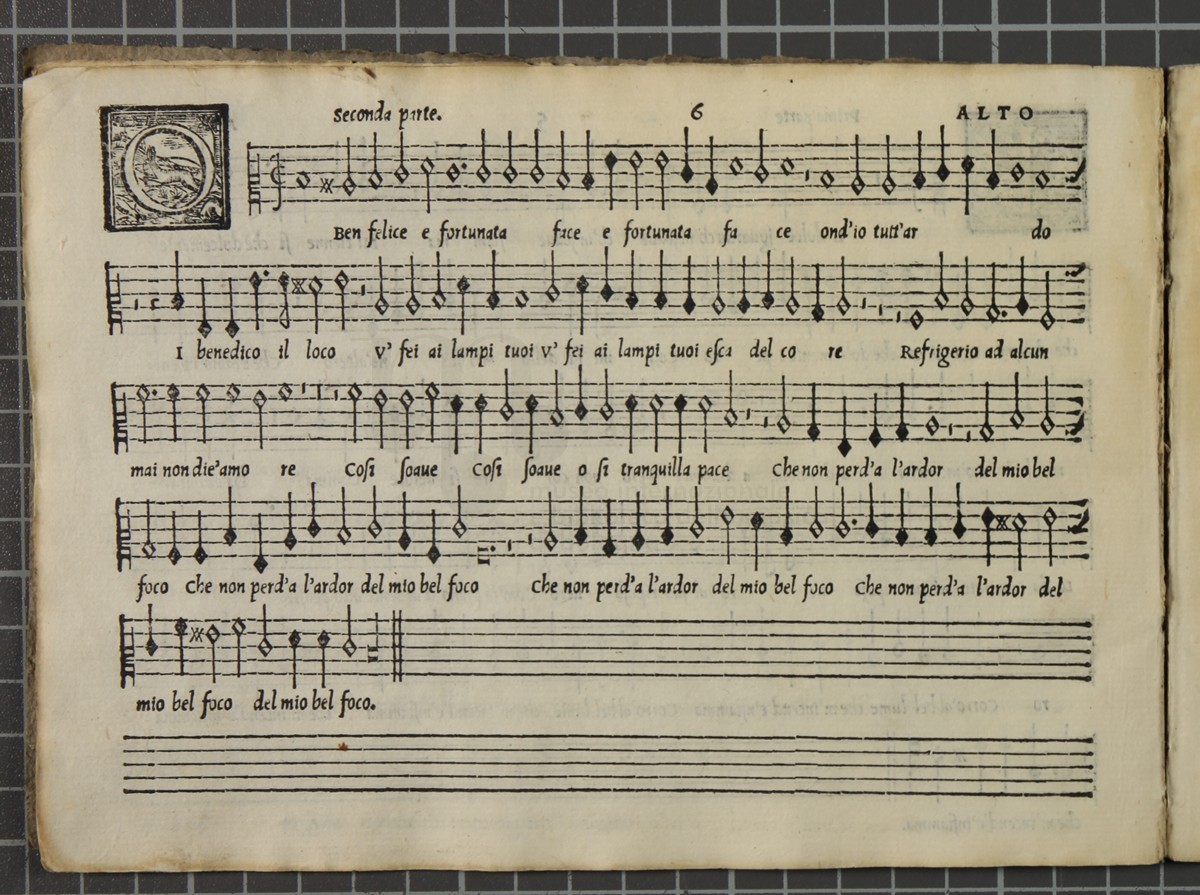 Seconda parte. 6 ALTO
O
Ben felice e fortunata face e fortunata fa ce ond'io tutt'ar do
I benedico il loco V' fei ai lampi tuoi v' fei ai lampi tuoi eſca del co re Refrigerio ad alcun
mai non die'amo re Coſi ſoaue Coſi ſoaue o ſi tranquilla pace Che non perd'a l'ardor del mio bel
foco Che non perd'a l'ardor del mio bel foco Che non perd'a l'ardor del mio bel foco Che non perd'a l'ardor del
mio bel foco del mio bel foco.